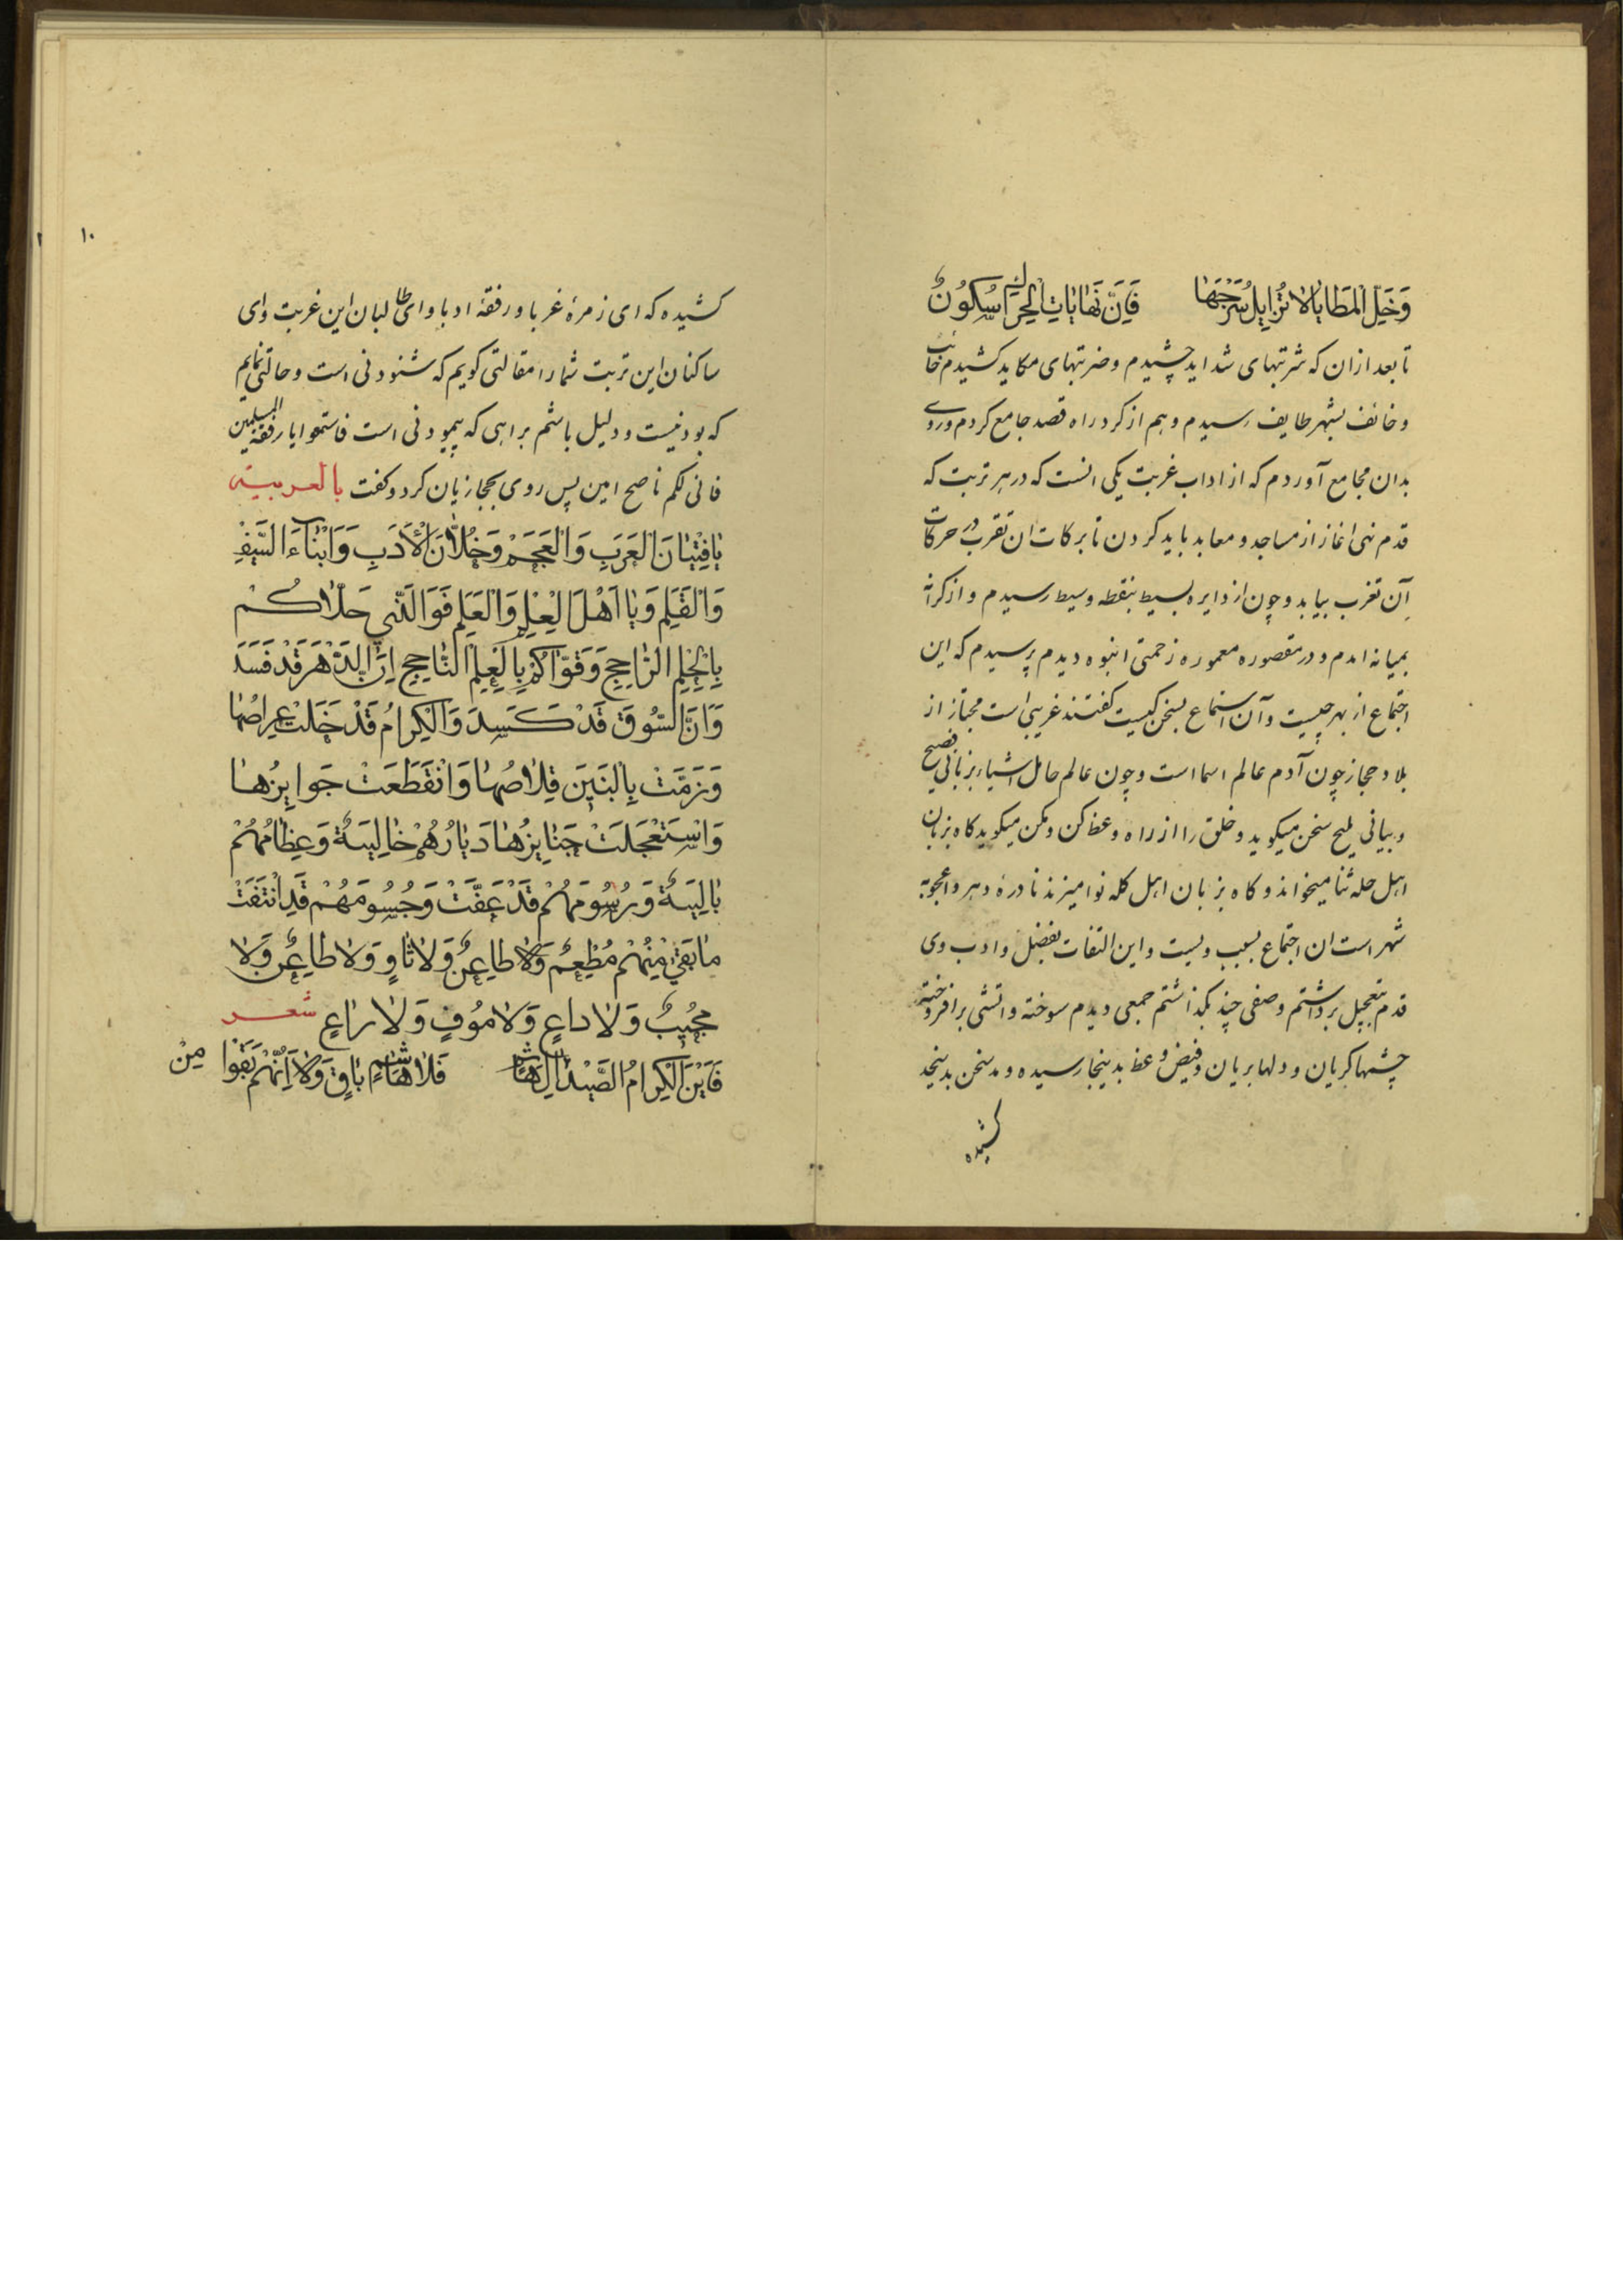 وَخَلِّ الْمَطَايَا لَا تُزَايِلْ سَرْجَهَا فَإِنَّ نَهَايَاتِ الْحِرَاكِ سُكُونُ
تا بعد ازان که شربتهای شداید چشیدم و ضربتهای مکاید کشیدم خائب
و خائف بشهر طایف رسیدم و هم از کرد راه قصد جامع کردم و روی
بدان مجامع آوردم که از اداب غربت یکی انست که در هر تربت که
قدم نهی اغاز از مساجد و معابد باید کردن تا برکات ان تقرب در حرکات
آن تغرب بیابد و چون از دایره بسیط بنقطه وسیط رسیدم و از کرانه
بمیانه امدم و در مقصوره معموره زحمتی انبوه دیدم پرسیدم که این
اجتماع از بهر چیست و آن استماع بسخن کیست کفتند غریبی است مجتاز از
بلاد حجاز چون آدم عالم اسما است و چون عالم حامل اشیاء بزبانی فصیح
و بیانی ملیح سخن میکوید و خلق را از راه وعظ کن و مکن میکوید کاه بزبان
اهل حله ثنا میخواند و کاه بزبان اهل کله نوا میزند نادرهٔ دهر و اعجوبه
شهر است ان اجتماع بسبب ویست و این التفات بفضل و ادب وی
قدم بتعجیل برداشتم و صفی چند بگذاشتم جمعی دیدم سوخته و اتشی برافروخته
چشمها کریان و دلها بریان و فیض وعظ بدینجا رسیده و مد سخن بدینجد
کشیده
۱۰
کشیده که ای زمرهٔ غربا و رفقهٔ ادبا و ای طالبان این غربت و ای
ساکنان این تربت شمارا مقالتی کویم که شنودنی است و حالتی نمایم
که بودنیست و دلیل باشم براهی که پیمودنی است فاستمعوا یا رفقة المسلمین
فانی لکم ناصح امین پس روی بحجازیان کرد و کفت بالعربیة
يَا فِتْيَانَ الْعَرَبِ وَالْعَجَمْ وَخُلَّانَ الْأَدَبِ وَأَبْنَاءَ السَّيْفِ
وَالْقَلَمِ وَيَا اَهْلَ الْعِلْمِ وَالْعَلَمِ فَوَالَّذِي حَلَّاكُمْ
بِالْحِلْمِ الرَّاجِحِ وَقَوَّاكُمْ بِالْعِلْمِ النَّاجِحِ اِنَّ الدَّهْرَ قَدْ فَسَدَ
وَاَنَّ السُّوقَ قَدْ كَسَدَ وَالْكِرَامُ قَدْ خَلَتْ عِرَاصُهَا
وَزَمَّتْ بِالْبَيْنِ قِلَاصُهَا وَانْقَطَعَتْ جَوَايِزُهَا
وَاسْتَعْجَلَتْ جَنَايِزُهَا دِيَارُهُمْ خَالِيَةٌ وَعِظَامُهُمْ
بَالِيَةٌ وَرُسُومُهُمْ قَدْ عَفَتْ وَجُسُومُهُمْ قَدِ انْتَفَتْ
مَا بَقِيَ مِنْهُمْ مُطْعِمٌ وَلَا طَاعِنٌ وَلَا ثَاوٍ وَلَا ظَاعِنٌ وَلَا
مُجِيبٌ وَلَا دَاعٍ وَلَا مُوفٍ وَلَا رَاعٍ شعر
فَأَيْنَ الْكِرَامُ الصَّيْدُ مِنْ آلِ هَاشِمٍ فَلَا هَاشِمٌ بَاقٍ وَلَا اِنَّهُمْ بَقُوا